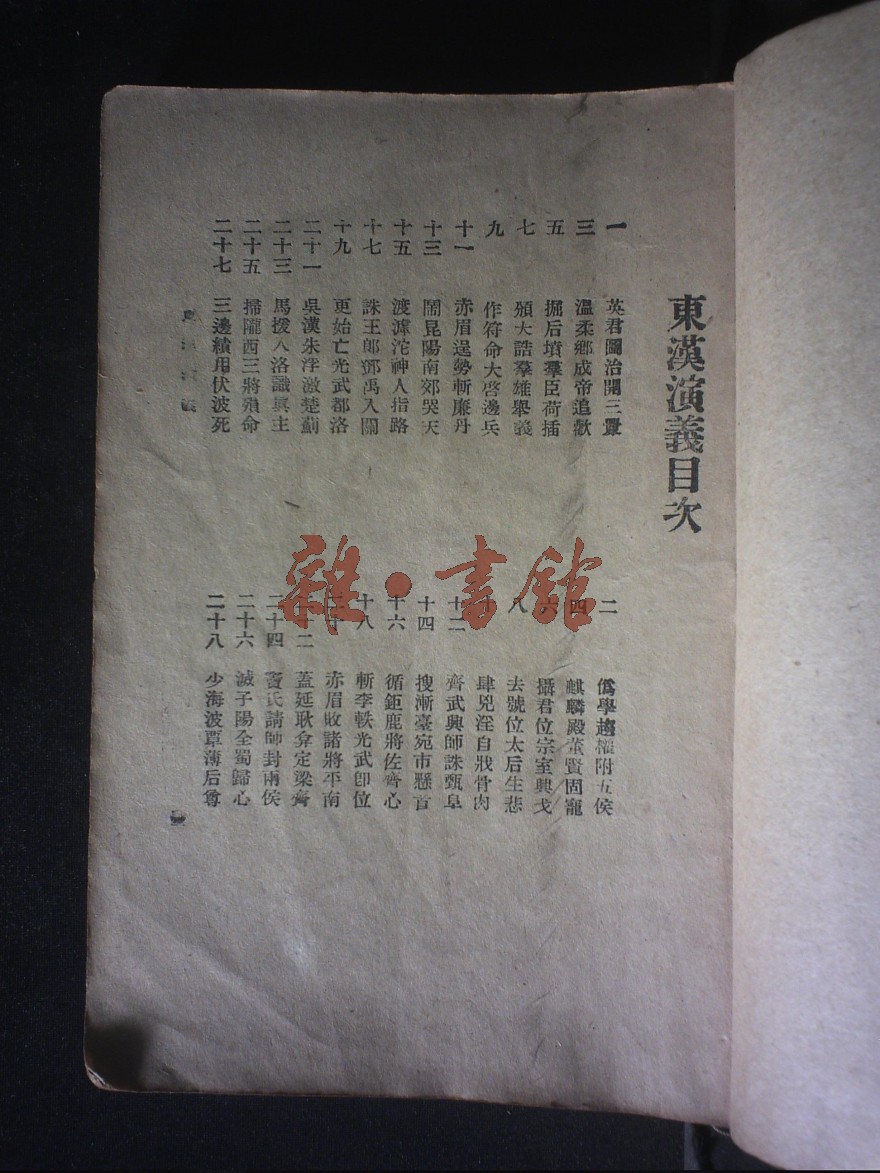 東漢演義目次
一 英君圖治開三釁
二 僞學趨權附五侯
三 溫柔鄉成帝追歡
四 麒麟殿董賢固寵
五 掘后墳羣臣荷插
六 攝君位宗室興戈
七 頒大誥羣雄舉義
八 去號位太后生悲
九 作符命大啓邊兵
十 肆兇淫自戕骨肉
十一 赤眉逞勢斬廉丹
十二 齊武興師誅甄阜
十三 鬧昆陽南郊哭天
十四 搜漸臺宛市懸首
十五 渡滹沱神人指路
十六 循鉅鹿將佐齊心
十七 誅王郎鄧禹入關
十八 斬李軼光武卽位
十九 更始亡光武都洛
二十 赤眉敗諸將平南
二十一 吳漢朱浮激楚薊
二十二 蓋延耿弇定梁齊
二十三 馬援入洛識眞主
二十四 竇氏請師封兩侯
二十五 掃隴西三將殞命
二十六 滅子陽全蜀歸心
二十七 三邊績用伏波死
二十八 少海波覃薄后尊
雜·書館